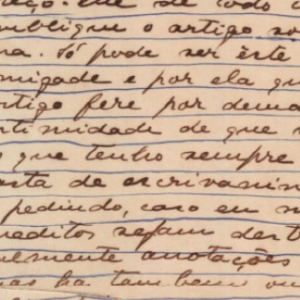 eço-lhe de todo o
publique o artigo so
na. Só pode ser êste
migade e por ela qu
rtigo fere por dema
ntimidade de que n
s que tenho sempre
esta de escrivanin
pedindo, caso eu m
neditos sejam dest
almente anotações
mas ha tambem ou